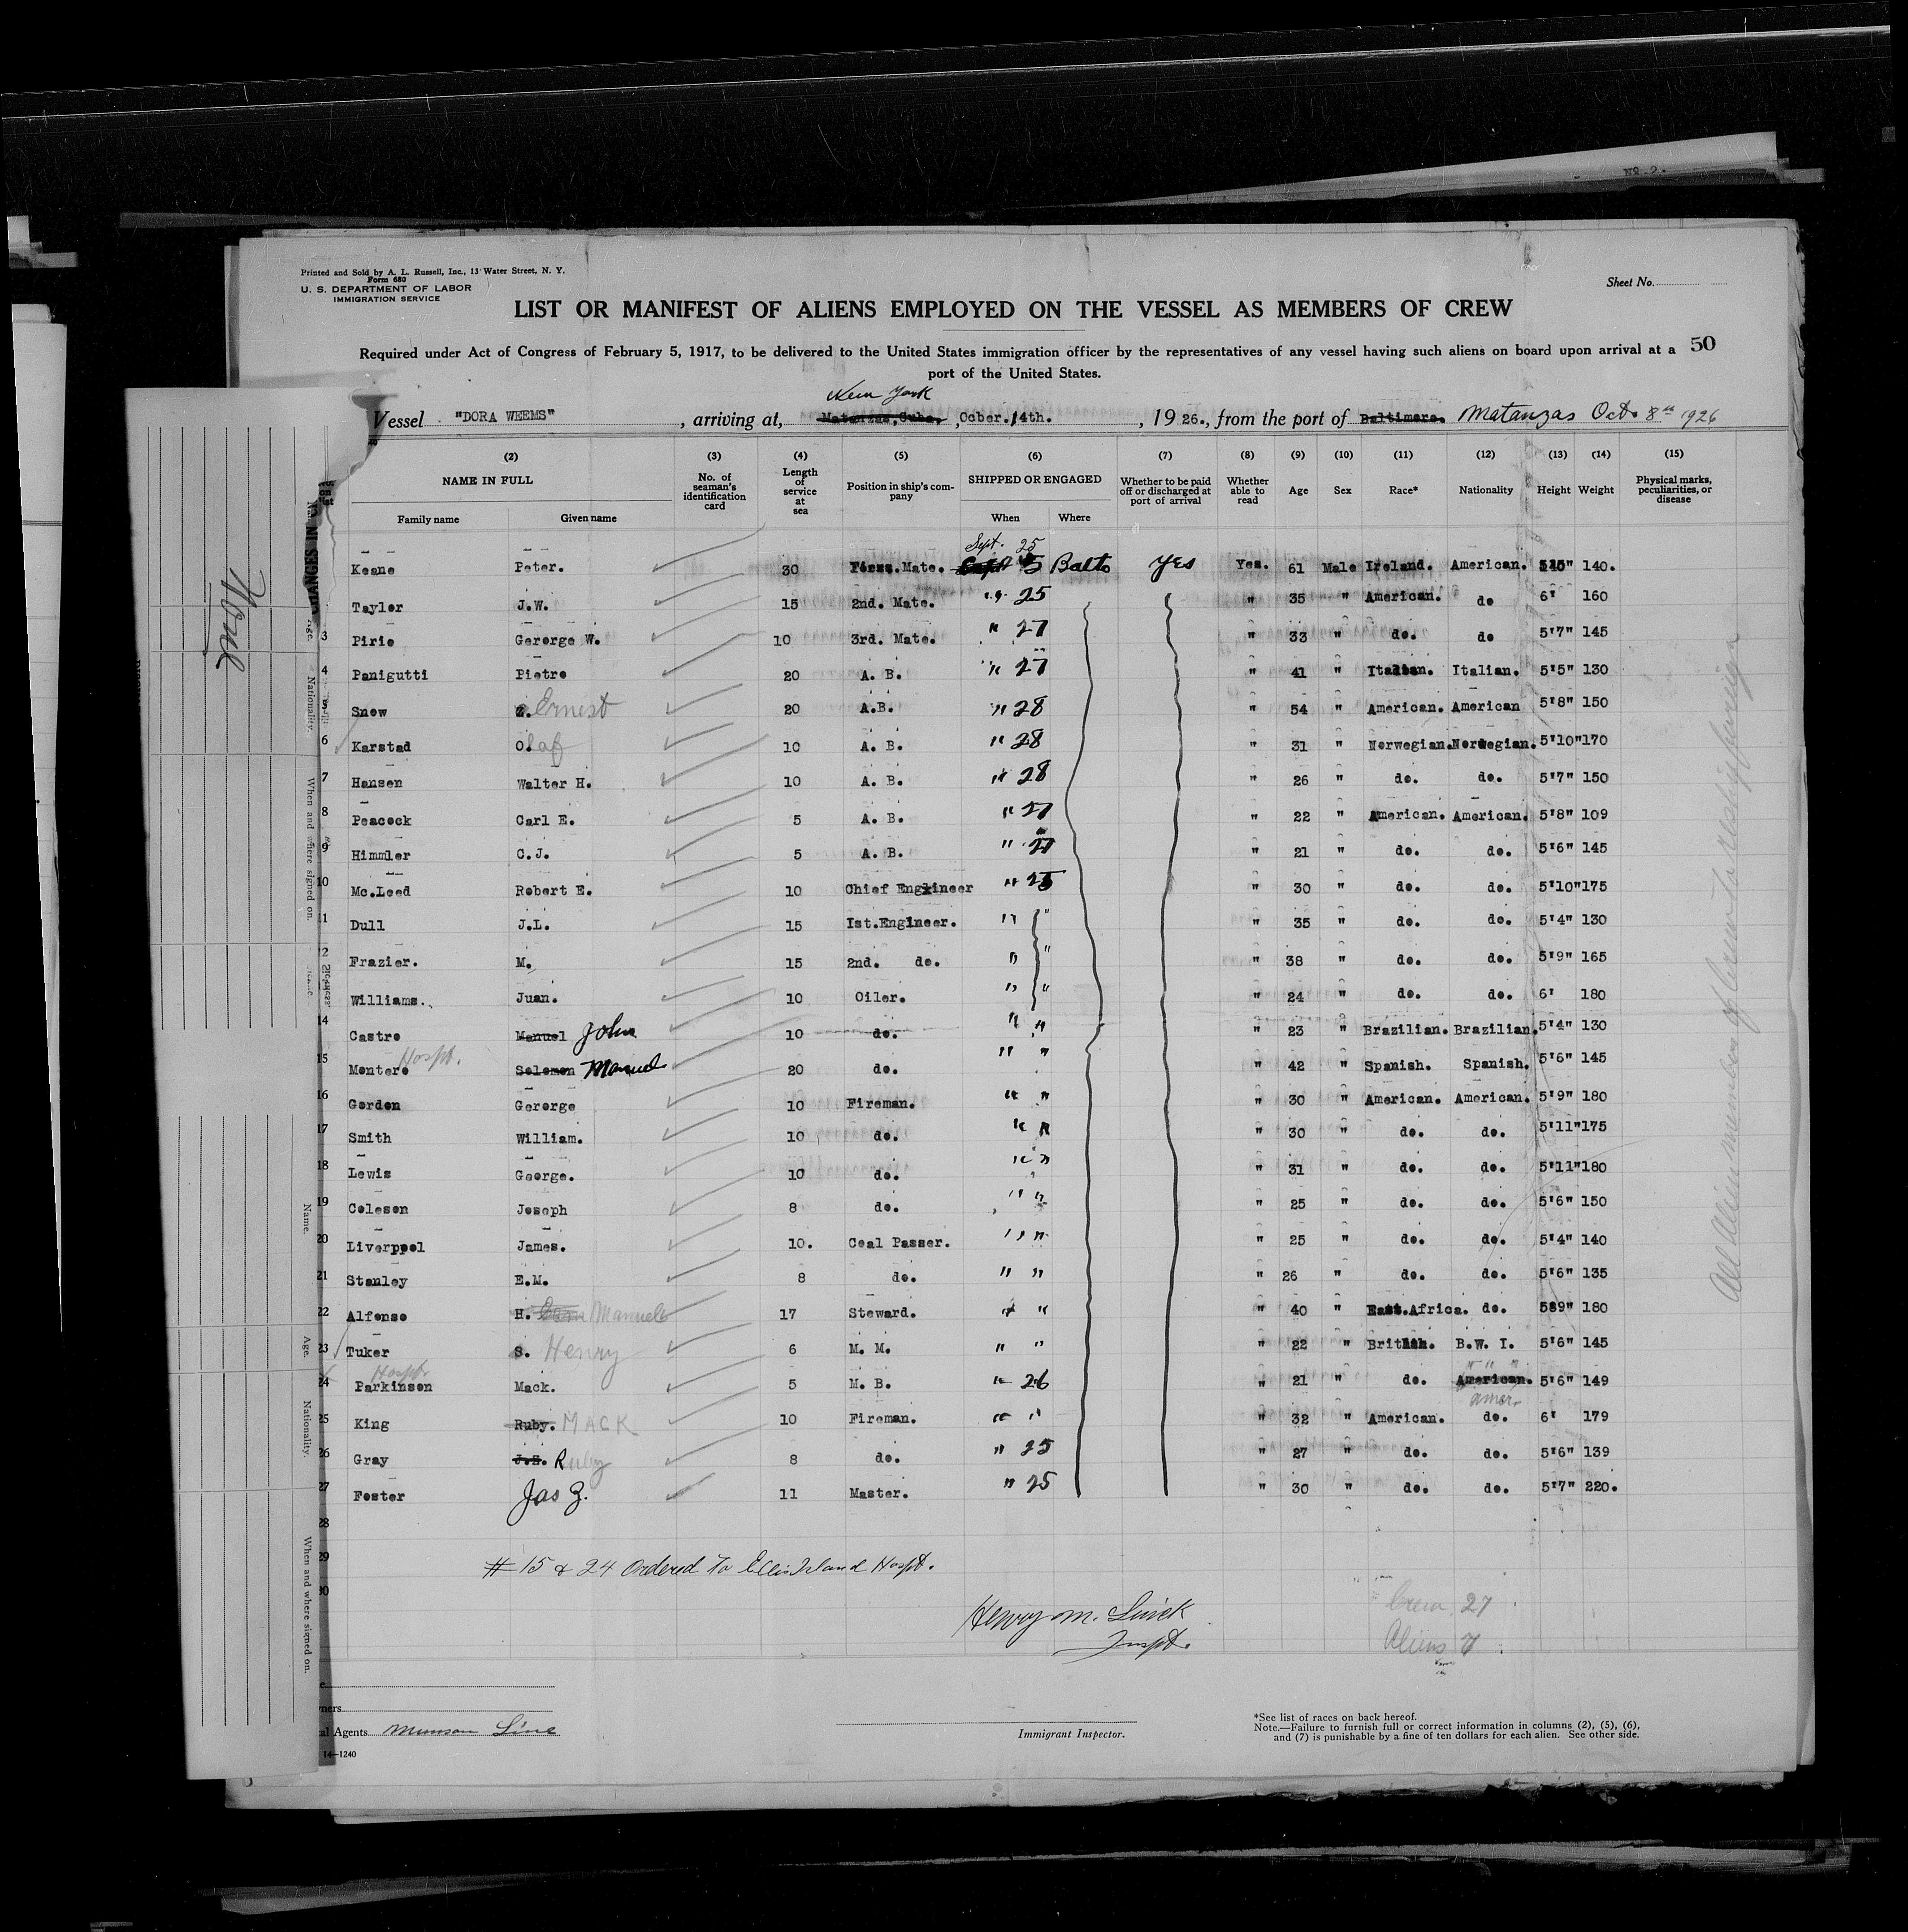 No. 2.
Printed and Sold by A. L. Russell, Inc., 13 Water Street, N. Y.
Form 680
U. S. DEPARTMENT OF LABOR
IMMIGRATION SERVICE
Sheet No.
LIST OR MANIFEST OF ALIENS EMPLOYED ON THE VESSEL AS MEMBERS OF CREW
Required under Act of Congress of February 5, 1917, to be delivered to the United States immigration officer by the representatives of any vessel having such aliens on board upon arrival at a 50
port of the United States.
New York
Vessel "DORA WEEMS" , arriving at, Matanzas, Cuba, , Ocber. 14th. , 19 26. , from the port of Baltimore. Matanzas Oct. 8th 1926
(2) (3) (4) (5) (6) (7) (8) (9) (10) (11) (12) (13) (14) (15)
NAME IN FULL No. of seaman's identification card Length of service at sea Position in ship's company SHIPPED OR ENGAGED Whether to be paid off or discharged at port of arrival Whether able to read Age Sex Race* Nationality Height Weight Physical marks, peculiarities, or disease
Family name Given name When Where
Sept. 25
Keane Peter. 30 Mate. Balto Yes Yes. 61 Male Ireland. American. 140.
Taylor J.W. 15 2nd. Mate. " 25 " 35 " American. do 6' 160
3 Pirie Gerorge W. 10 3rd. Mate. " 27 " 33 " do. do 5'7" 145
4 Panigutti Pietro 20 A. B. " 27 " 41 " Italian. Italian. 5'5" 130
5 Snow Ernest 20 A.B. " 28 " 54 " American. American 5'8" 150
6 Karstad Olaf 10 A. B. " 28 " 31 " Norwegian. Norwegian. 5'10" 170
7 Hansen Walter H. 10 A. B. " 28 " 26 " do. do. 5'7" 150
8 Peacock Carl E. 5 A. B. " 27 " 22 " American. American. 5'8" 109
9 Himmler C.J. 5 A. B. " 27 " 21 " do. do. 5'6" 145
10 Mc.Leod Robert E. 10 Chief Engkineer " 25 " 30 " do. do. 5'10" 175
11 Dull J.L. 15 Ist.Engineer. " " " 35 " do. do. 5'4" 130
12 Frazier. M. 15 2nd. do. " " " 38 " do. do. 5'9" 165
Williams. Juan. 10 Oiler. " " " 24 " do. do. 6' 180
14 Castro Manuel John 10 do. " " " 23 " Brazilian. Brazilian. 5'4" 130
15 Montero Hospt. Solomon Manuel 20 do. " " " 42 " Spanish. Spanish. 5'6" 145
16 Gordon Gerorge 10 Fireman. " " " 30 " American. American. 5'9" 180
17 Smith William. 10 do. " " " 30 " do. do. 5'11" 175
18 Lewis George. 10 do. " " " 31 " do. do. 5'11" 180
19 Coleson Joseph 8 do. " " " 25 " do. do. 5'6" 150
20 Liverppol James. 10. Coal Passer. " " " 25 " do. do. 5'4" 140
21 Stanley E.M. 8 do. " " " 26 " do. do. 5'6" 135
22 Alfonso H. Manuel 17 Steward. " " " 40 " East.Africa. do. 589" 180
23 Tuker S. Henry 6 M. M. " " " 22 " British. B.W. I. 5'6" 145
24 Hospt. Parkinson Mack. 5 M. B. " 26 " 21 " do. American. " " " 5'6" 149
amer.
25 King Ruby. MACK 10 Fireman. " " " 32 " American. do. 6' 179
26 Gray J.Z. Ruby 8 do. " 25 " 27 " do. do. 5'6" 139
27 Foster Jas Z. 11 Master. " 25 " 30 " do. do. 5'7" 220.
28
29
30
# 15 & 24 Ordered to Ellis Island Hospt.
Henry M.
Inspt.
Crew 27
Aliens 7
All Alien members of crew to reship foreign
Agents Munson Line
14—1240
Immigrant Inspector.
*See list of races on back hereof.
Note.—Failure to furnish full or correct information in columns (2), (5), (6),
and (7) is punishable by a fine of ten dollars for each alien. See other side.
CHANGES IN
Age.
Nationality.
When and where signed on.
Name.
Age.
Nationality.
When and where signed on.
None